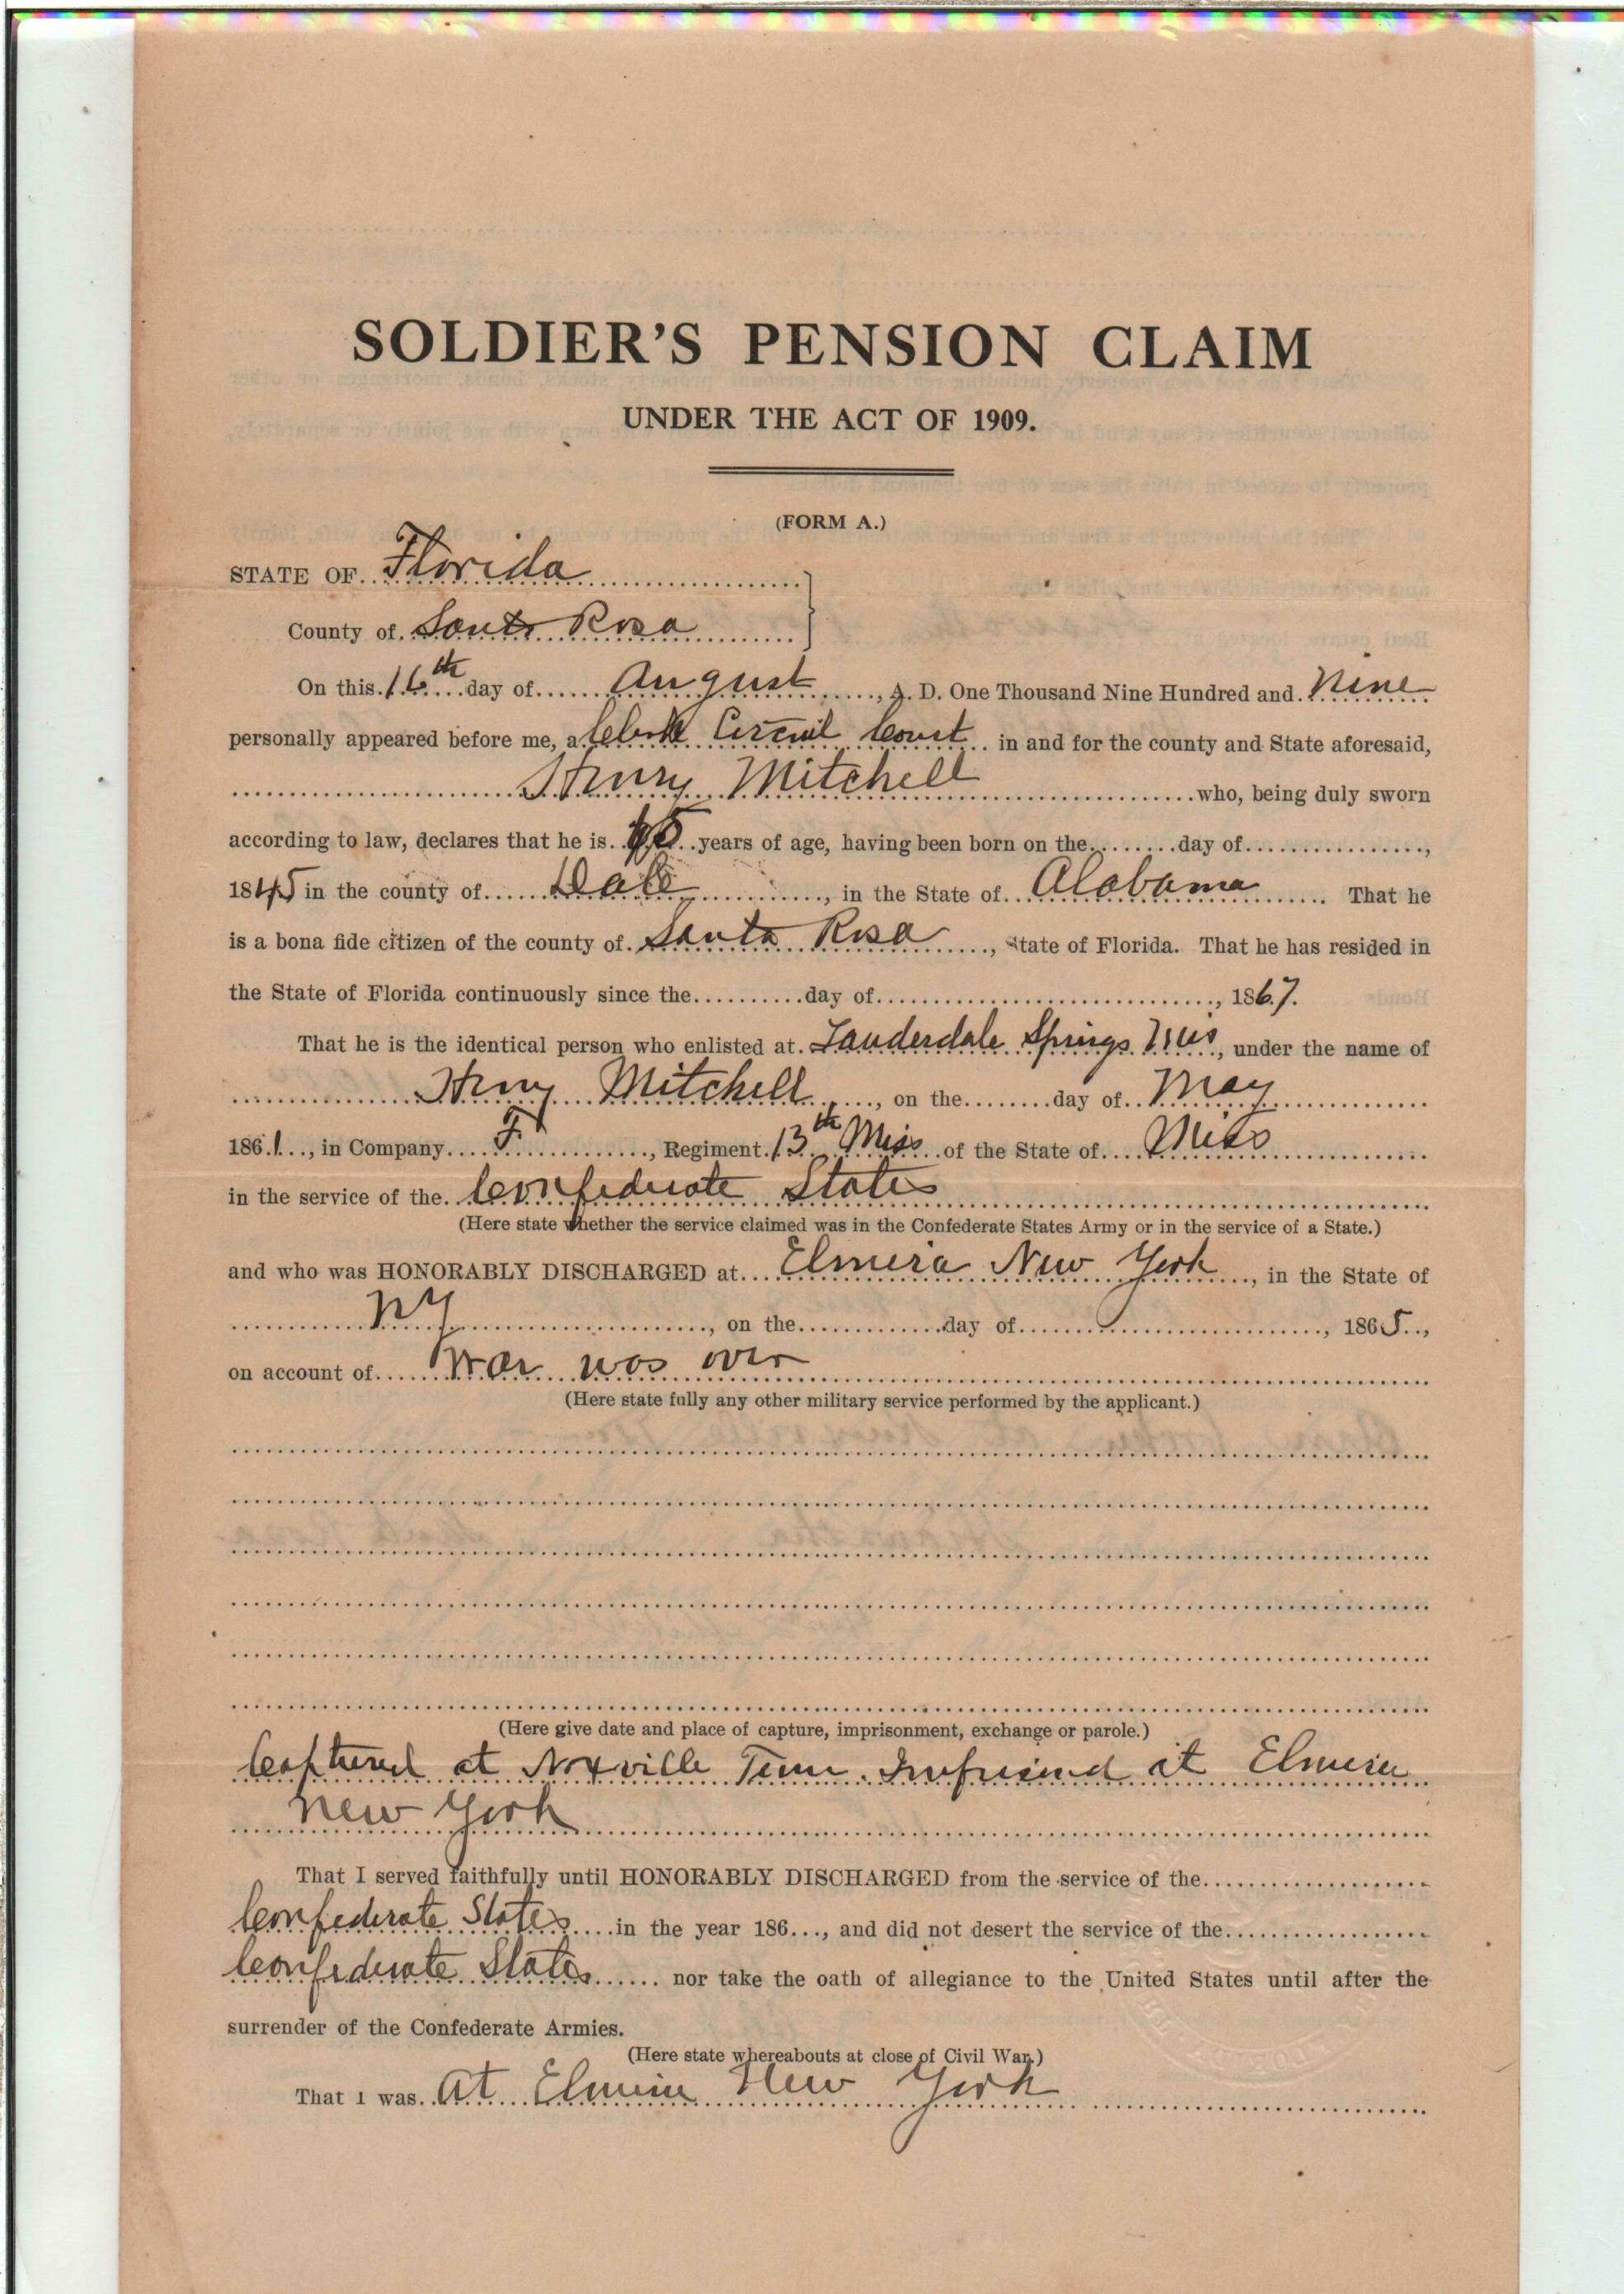 SOLDIER'S PENSION CLAIM
UNDER THE ACT OF 1909.
(FORM A.)
STATE OF Florida
County of Santa Rosa
On this 16th day of August, A. D. One Thousand Nine Hundred and Nine
personally appeared before me, a Clerk Circuit Court in and for the county and State aforesaid,
Henry Mitchell who, being duly sworn
according to law, declares that he is years of age, having been born on the day of ,
1845 in the county of Dale, in the State of Alabama. That he
is a bona fide citizen of the county of Santa Rosa, State of Florida. That he has resided in
the State of Florida continuously since the day of , 1867.
That he is the identical person who enlisted at Lauderdale Springs Miss, under the name of
Henry Mitchell, on the day of May
1861, in Company F, Regiment 13th Miss of the State of Miss
in the service of the Confederate States
(Here state whether the service claimed was in the Confederate States Army or in the service of a State.)
and who was HONORABLY DISCHARGED at Elmira New York, in the State of
NY, on the day of , 1865,
on account of War was over
(Here state fully any other military service performed by the applicant.)
(Here give date and place of capture, imprisonment, exchange or parole.)
Captured at Noxville Tenn. Imprisond at Elmira
New York
That I served faithfully until HONORABLY DISCHARGED from the service of the
Confederate States in the year 186..., and did not desert the service of the
Confederate States nor take the oath of allegiance to the United States until after the
surrender of the Confederate Armies.
(Here state whereabouts at close of Civil War.)
That I was At Elmira New York